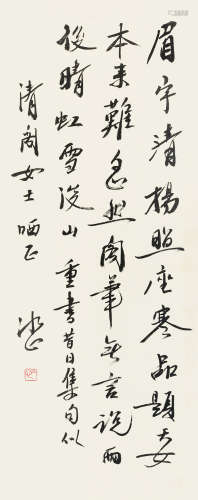 眉宇清揚照座寒品題天女
本來難忽然閣筆無言說雨
後晴虹雪後山重書昔日集句似
清閣女士哂正
冰心